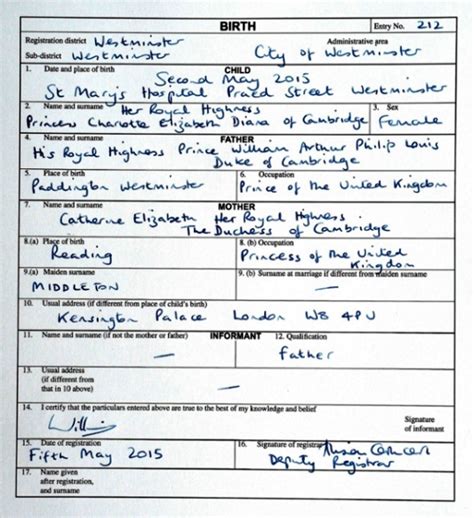 BIRTH Entry No. 212
Registration district Westminster Administrative area
Sub-district Westminster City of Westminster
1. Date and place of birth CHILD
Second May 2015
St Mary's Hospital Praed Street Westminster
2. Name and surname Her Royal Highness 3. Sex
Princess Charlotte Elizabeth Diana of Cambridge Female
4. Name and surname FATHER
His Royal Highness Prince William Arthur Philip Louis
Duke of Cambridge
5. Place of birth 6. Occupation
Paddington Westminster Prince of the United Kingdom
7. Name and surname MOTHER
Catherine Elizabeth Her Royal Highness
The Duchess of Cambridge
8.(a) Place of birth 8. (b) Occupation
Reading Princess of the United
Kingdom
9.(a) Maiden surname 9. (b) Surname at marriage if different from maiden surname
MIDDLETON —
10. Usual address (if different from place of child's birth)
Kensington Palace London W8 4PU
11. Name and surname (if not the mother or father) INFORMANT 12. Qualification
— Father
13. Usual address
(if different from
that in 10 above) —
14. I certify that the particulars entered above are true to the best of my knowledge and belief
Signature
of informant
15. Date of registration 16. Signature of registrar
Fifth May 2015 Deputy Registrar
17. Name given
after registration,
and surname